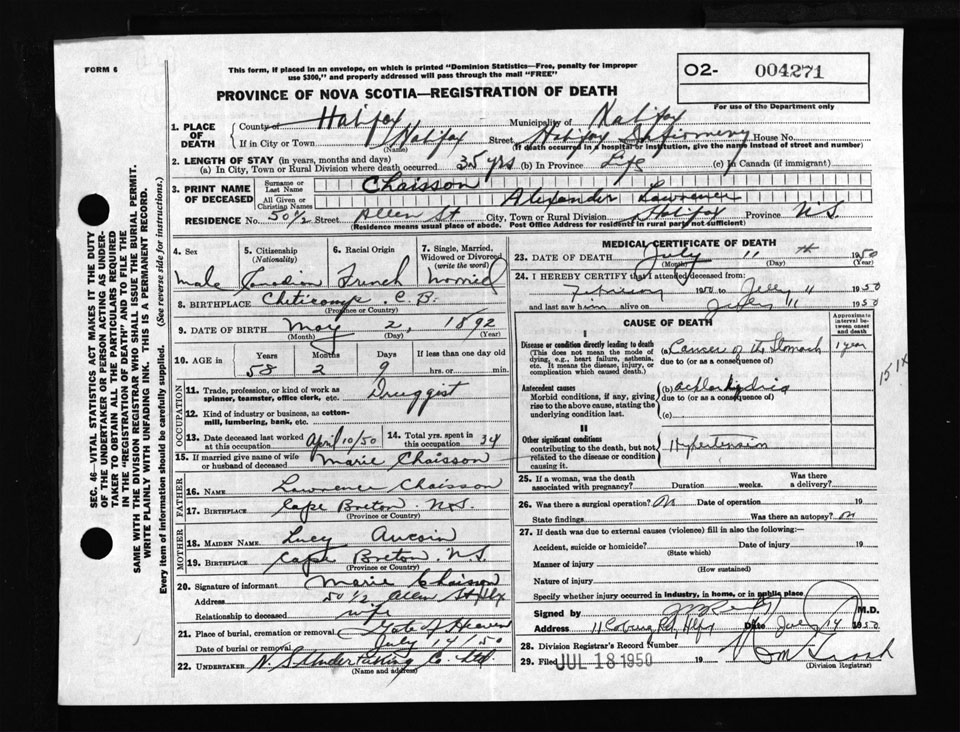 FORM 6
This form, if placed in an envelope, on which is printed "Dominion Statistics—Free, penalty for improper
use $300," and properly addressed will pass through the mail "FREE"
O2- 004271
For use of the Department only
PROVINCE OF NOVA SCOTIA—REGISTRATION OF DEATH
1. PLACE OF DEATH
County of Halifax Municipality of Halifax
If in City or Town Halifax Street Halifax Infirmary House No.
(Name) (If death occurred in a hospital or institution, give the name instead of street and number)
2. LENGTH OF STAY (in years, months and days)
(a) In City, Town or Rural Division where death occurred 35 yrs (b) In Province Life (c) in Canada (if immigrant)
3. PRINT NAME OF DECEASED
Surname or Last Name Chaisson
All Given or Christian Names Alexander Lawrence
RESIDENCE No. 50½ Street Allen St City, Town or Rural Division Halifax Province N.S.
(Residence means usual place of abode. Post Office Address for residents in rural parts not sufficient)
4. Sex
Male
5. Citizenship
(Nationality)
Canadian
6. Racial Origin
French
7. Single, Married, Widowed or Divorced
(write the word)
Married
8. BIRTHPLACE Cheticamp C.B.
(Province or Country)
9. DATE OF BIRTH May 2, 1892
(Month) (Day) (Year)
10. AGE in Years Months Days If less than one day old
58 2 9 hrs. or min.
OCCUPATION
11. Trade, profession, or kind of work as
spinner, teamster, office clerk, etc. Druggist
12. Kind of industry or business, as cotton-
mill, lumbering, bank, etc.
13. Date deceased last worked
at this occupation April 10/50
14. Total yrs. spent in
this occupation 34
15. If married give name of wife
or husband of deceased Marie Chaisson
FATHER
16. NAME Lawrence Chaisson
17. BIRTHPLACE Cape Breton N.S.
(Province or Country)
MOTHER
18. MAIDEN NAME Lucy Aucoin
19. BIRTHPLACE Cape Breton N.S.
(Province or Country)
20. Signature of informant Marie Chaisson
Address 50½ Allen St Hfx
Relationship to deceased wife
21. Place of burial, cremation or removal Gate of Heaven
Date of burial or removal July 14/50
22. UNDERTAKER N. S. Undertaking Co. Ltd.
(Name and address)
MEDICAL CERTIFICATE OF DEATH
23. DATE OF DEATH July 11th 1950
(Month) (Day) (Year)
24. I HEREBY CERTIFY that I attended deceased from:
February 1950 to July 11 1950
and last saw him alive on July 11 1950
CAUSE OF DEATH
Approximate interval between onset and death
I
Disease or condition directly leading to death
(This does not mean the mode of
dying, e.g., heart failure, asthenia,
etc. It means the disease, injury, or
complication which caused death.)
(a) Cancer of the Stomach 1 year
due to (or as a consequence of)
Antecedent causes
Morbid conditions, if any, giving
rise to the above cause, stating the
underlying condition last.
(b) achlorhydria
due to (or as a consequence of)
(c)
II
Other significant conditions
contributing to the death, but not
related to the disease or condition
causing it.
Hypertension
25. If a woman, was the death
associated with pregnancy? Duration weeks. Was there a delivery?
26. Was there a surgical operation? No Date of operation 19
State findings Was there an autopsy? No
27. If death was due to external causes (violence) fill in also the following:—
Accident, suicide or homicide? Date of injury 19
(State which)
Manner of injury
(How sustained)
Nature of injury
Specify whether injury occurred in industry, in home, or in public place
Signed by M.D.
Address 11 Coburg Rd Hfx Date July 14 1950
28. Division Registrar's Record Number
29. Filed JUL 18 1950 19
(Division Registrar)
SEC. 46—VITAL STATISTICS ACT MAKES IT THE DUTY
OF THE UNDERTAKER OR PERSON ACTING AS UNDER-
TAKER TO OBTAIN ALL THE PARTICULARS REQUIRED
IN THE "REGISTRATION OF DEATH" AND TO FILE THE
SAME WITH THE DIVISION REGISTRAR WHO SHALL ISSUE THE BURIAL PERMIT.
WRITE PLAINLY WITH UNFADING INK. THIS IS A PERMANENT RECORD.
Every item of information should be carefully supplied. (See reverse side for instructions.)